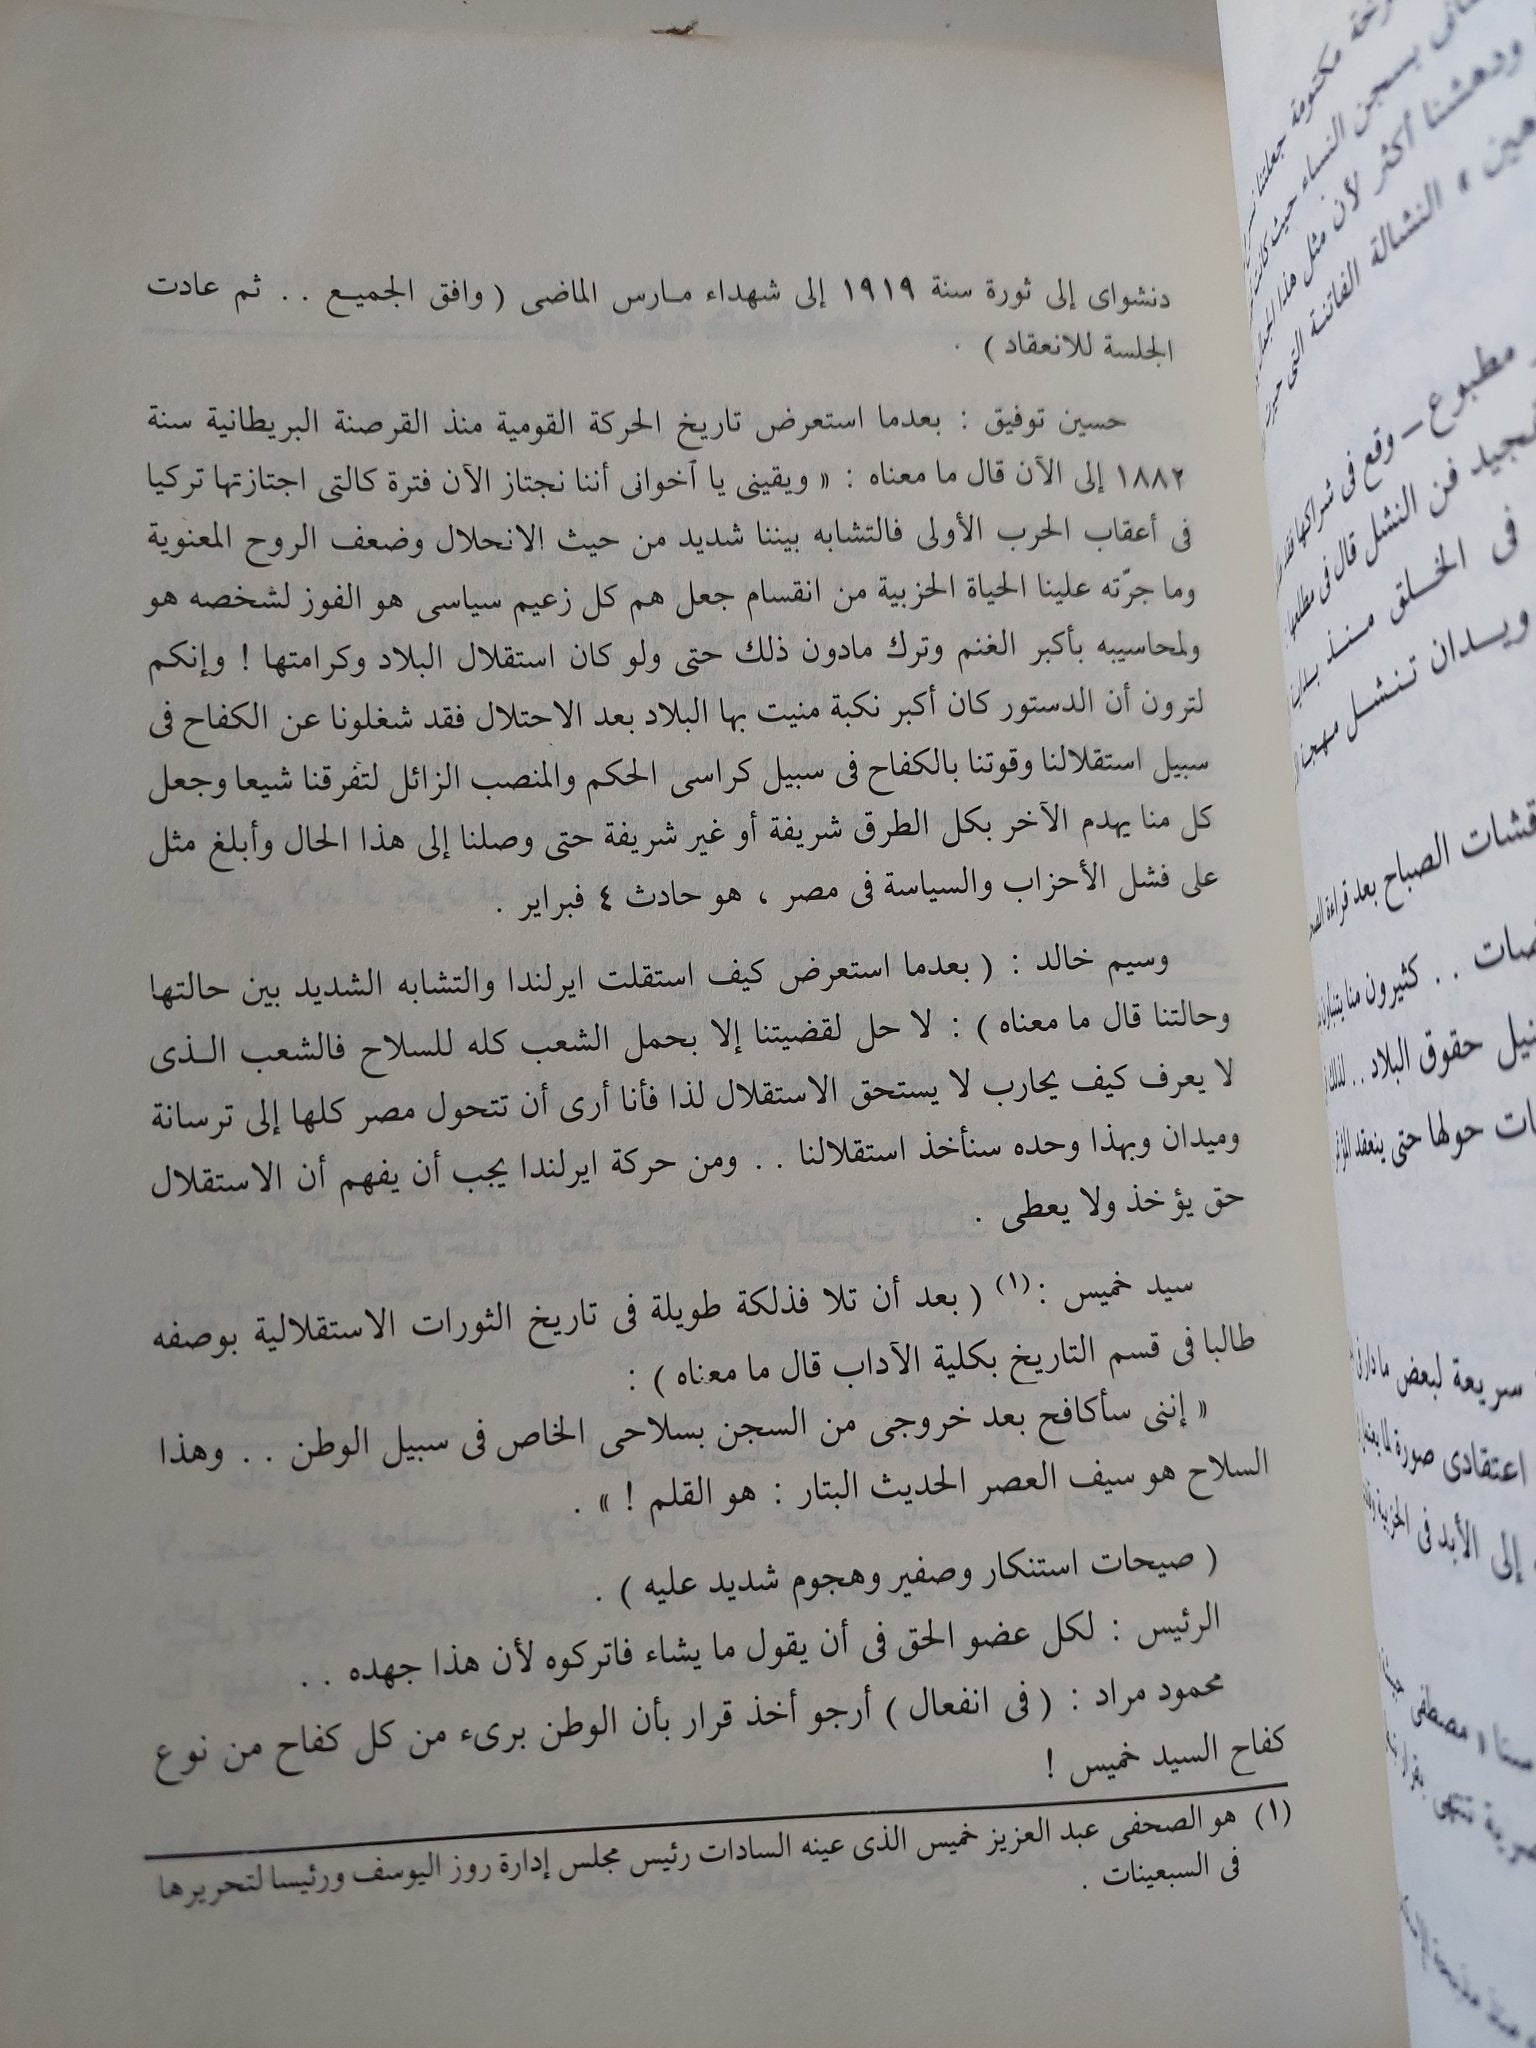 دنشواى إلى ثورة سنة ١٩١٩ إلى شهداء مارس الماضى ( وافق الجميع . . ثم عادت
الجلسة للانعقاد ) .
حسين توفيق : بعدما استعرض تاريخ الحركة القومية منذ القرصنة البريطانية سنة
١٨٨٢ إلى الآن قال ما معناه : « ويقينى يا أخوانى أننا نجتاز الآن فترة كالتى اجتازتها تركيا
فى أعقاب الحرب الأولى فالتشابه بيننا شديد من حيث الانحلال وضعف الروح المعنوية
وما جرّته علينا الحياة الحزبية من انقسام جعل هم كل زعيم سياسى هو الفوز لشخصه هو
ولمحاسيبه بأكبر الغنم وترك مادون ذلك حتى ولو كان استقلال البلاد وكرامتها ! وإنكم
لترون أن الدستور كان أكبر نكبة منيت بها البلاد بعد الاحتلال فقد شغلونا عن الكفاح فى
سبيل استقلالنا وقوتنا بالكفاح فى سبيل كراسى الحكم والمنصب الزائل لتفرقنا شيعا وجعل
كل منا يهدم الآخر بكل الطرق شريفة أو غير شريفة حتى وصلنا إلى هذا الحال وأبلغ مثل
على فشل الأحزاب والسياسة فى مصر ، هو حادث ٤ فبراير .
وسيم خالد : ( بعدما استعرض كيف استقلت ايرلندا والتشابه الشديد بين حالتها
وحالتنا قال ما معناه ) : لا حل لقضيتنا إلا بحمل الشعب كله للسلاح فالشعب الذى
لا يعرف كيف يحارب لا يستحق الاستقلال لذا فأنا أرى أن تتحول مصر كلها إلى ترسانة
وميدان وبهذا وحده سنأخذ استقلالنا . . ومن حركة ايرلندا يجب أن يفهم أن الاستقلال
حق يؤخذ ولا يعطى .
سيد خميس :(١) ( بعد أن تلا فذلكة طويلة فى تاريخ الثورات الاستقلالية بوصفه
طالبا فى قسم التاريخ بكلية الآداب قال ما معناه ) :
« إننى سأكافح بعد خروجى من السجن بسلاحى الخاص فى سبيل الوطن . . وهذا
السلاح هو سيف العصر الحديث البتار : هو القلم ! » .
( صيحات استنكار وصفير وهجوم شديد عليه ) .
الرئيس : لكل عضو الحق فى أن يقول ما يشاء فاتركوه لأن هذا جهده . .
محمود مراد : ( فى انفعال ) أرجو أخذ قرار بأن الوطن برىء من كل كفاح من نوع
كفاح السيد خميس !
(١) هو الصحفى عبد العزيز خميس الذى عينه السادات رئيس مجلس إدارة روز اليوسف ورئيسا لتحريرها
فى السبعينات .
مكتومة جعلتنا
بسجن النساء حيث كانت
ودهشنا أكثر لأن مثل هذا
» النشالة الفاتنة التى
مطبوع – وقع فى شراكها
فن النشل قال فى مطلعها
فى الخلق منذ
ويدان تنشل
الصباح بعد قراءة
. . كثيرون منا
حقوق البلاد . .
حولها حتى ينعقد
سريعة لبعض
اعتقادى صورة
إلى الأبد فى الحزبية
« مصطفى
تنتهى